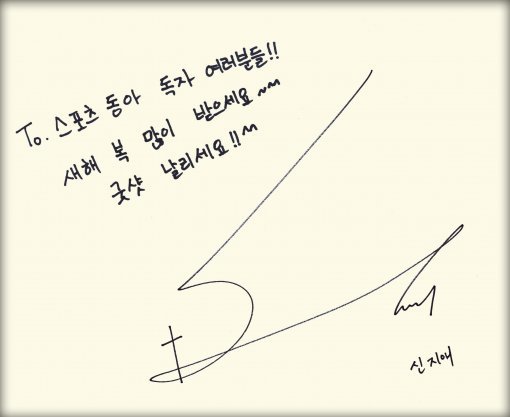 To. 스포츠 동아 독자 여러분들!!
새해 복 많이 받으세요~~
굿샷 날리세요!!^^
신지애